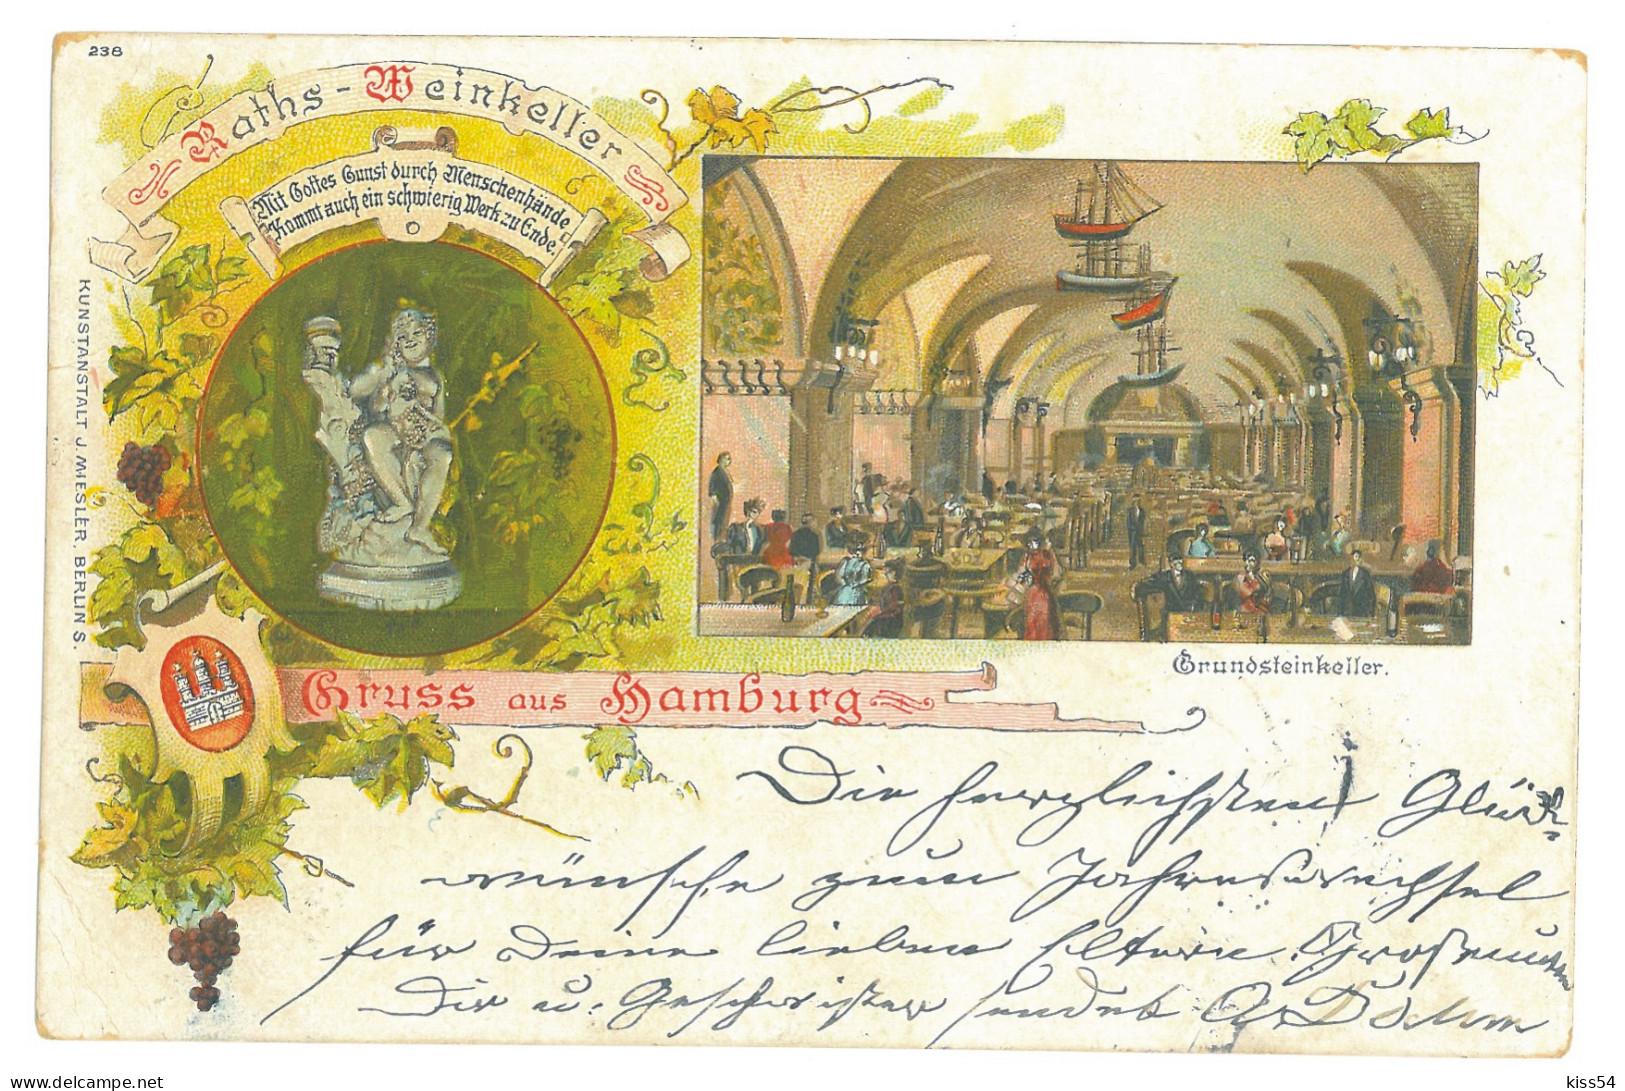 238
Raths-Weinkeller
Mit Gottes Gunst durch Menschenhände
Kommt auch ein schwierig Werk zu Ende.
KUNSTANSTALT J. MIESLER, BERLIN S.
Grundsteinkeller.
Gruss aus Hamburg
Die herzlichsten Glück-
wünsche zum Jahreswechsel
für Deine lieben Eltern Großmutter
Dir u. Geschwister sendet
delcampe.net
kiss54